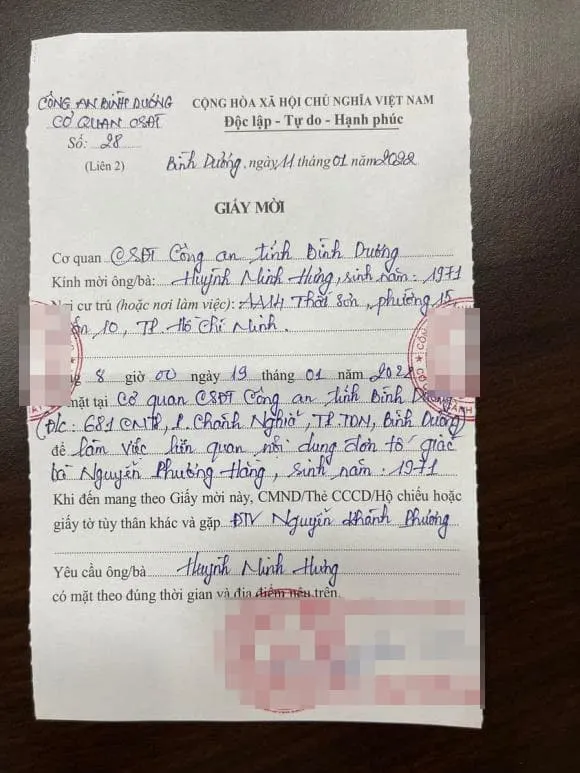 CÔNG AN BÌNH DƯƠNG
CƠ QUAN CSĐT
Số: 28
(Liên 2)
CỘNG HÒA XÃ HỘI CHỦ NGHĨA VIỆT NAM
Độc lập - Tự do - Hạnh phúc
Bình Dương, ngày 11 tháng 01 năm 2022
GIẤY MỜI
Cơ quan CSĐT Công an tỉnh Bình Dương
Kính mời ông/bà: Huỳnh Minh Hưng, sinh năm: 1971
cư trú (hoặc nơi làm việc): AA14 Thất Sơn, phường 15
10, TP. Hồ Chí Minh.
8 giờ 00 ngày 19 tháng 01 năm 2022
mặt tại Cơ quan CSĐT Công an tỉnh Bình Dương
(Đ/c: 681 CMT8, P. Chánh Nghĩa, TP.TDM, Bình Dương)
để làm việc liên quan nội dung đơn tố giác
bà Nguyễn Phương Hằng, sinh năm: 1971
Khi đến mang theo Giấy mời này, CMND/Thẻ CCCD/Hộ chiếu hoặc
giấy tờ tùy thân khác và gặp ĐTV Nguyễn Khánh Phương
Yêu cầu ông/bà Huỳnh Minh Hưng
có mặt theo đúng thời gian và địa điểm nêu trên.